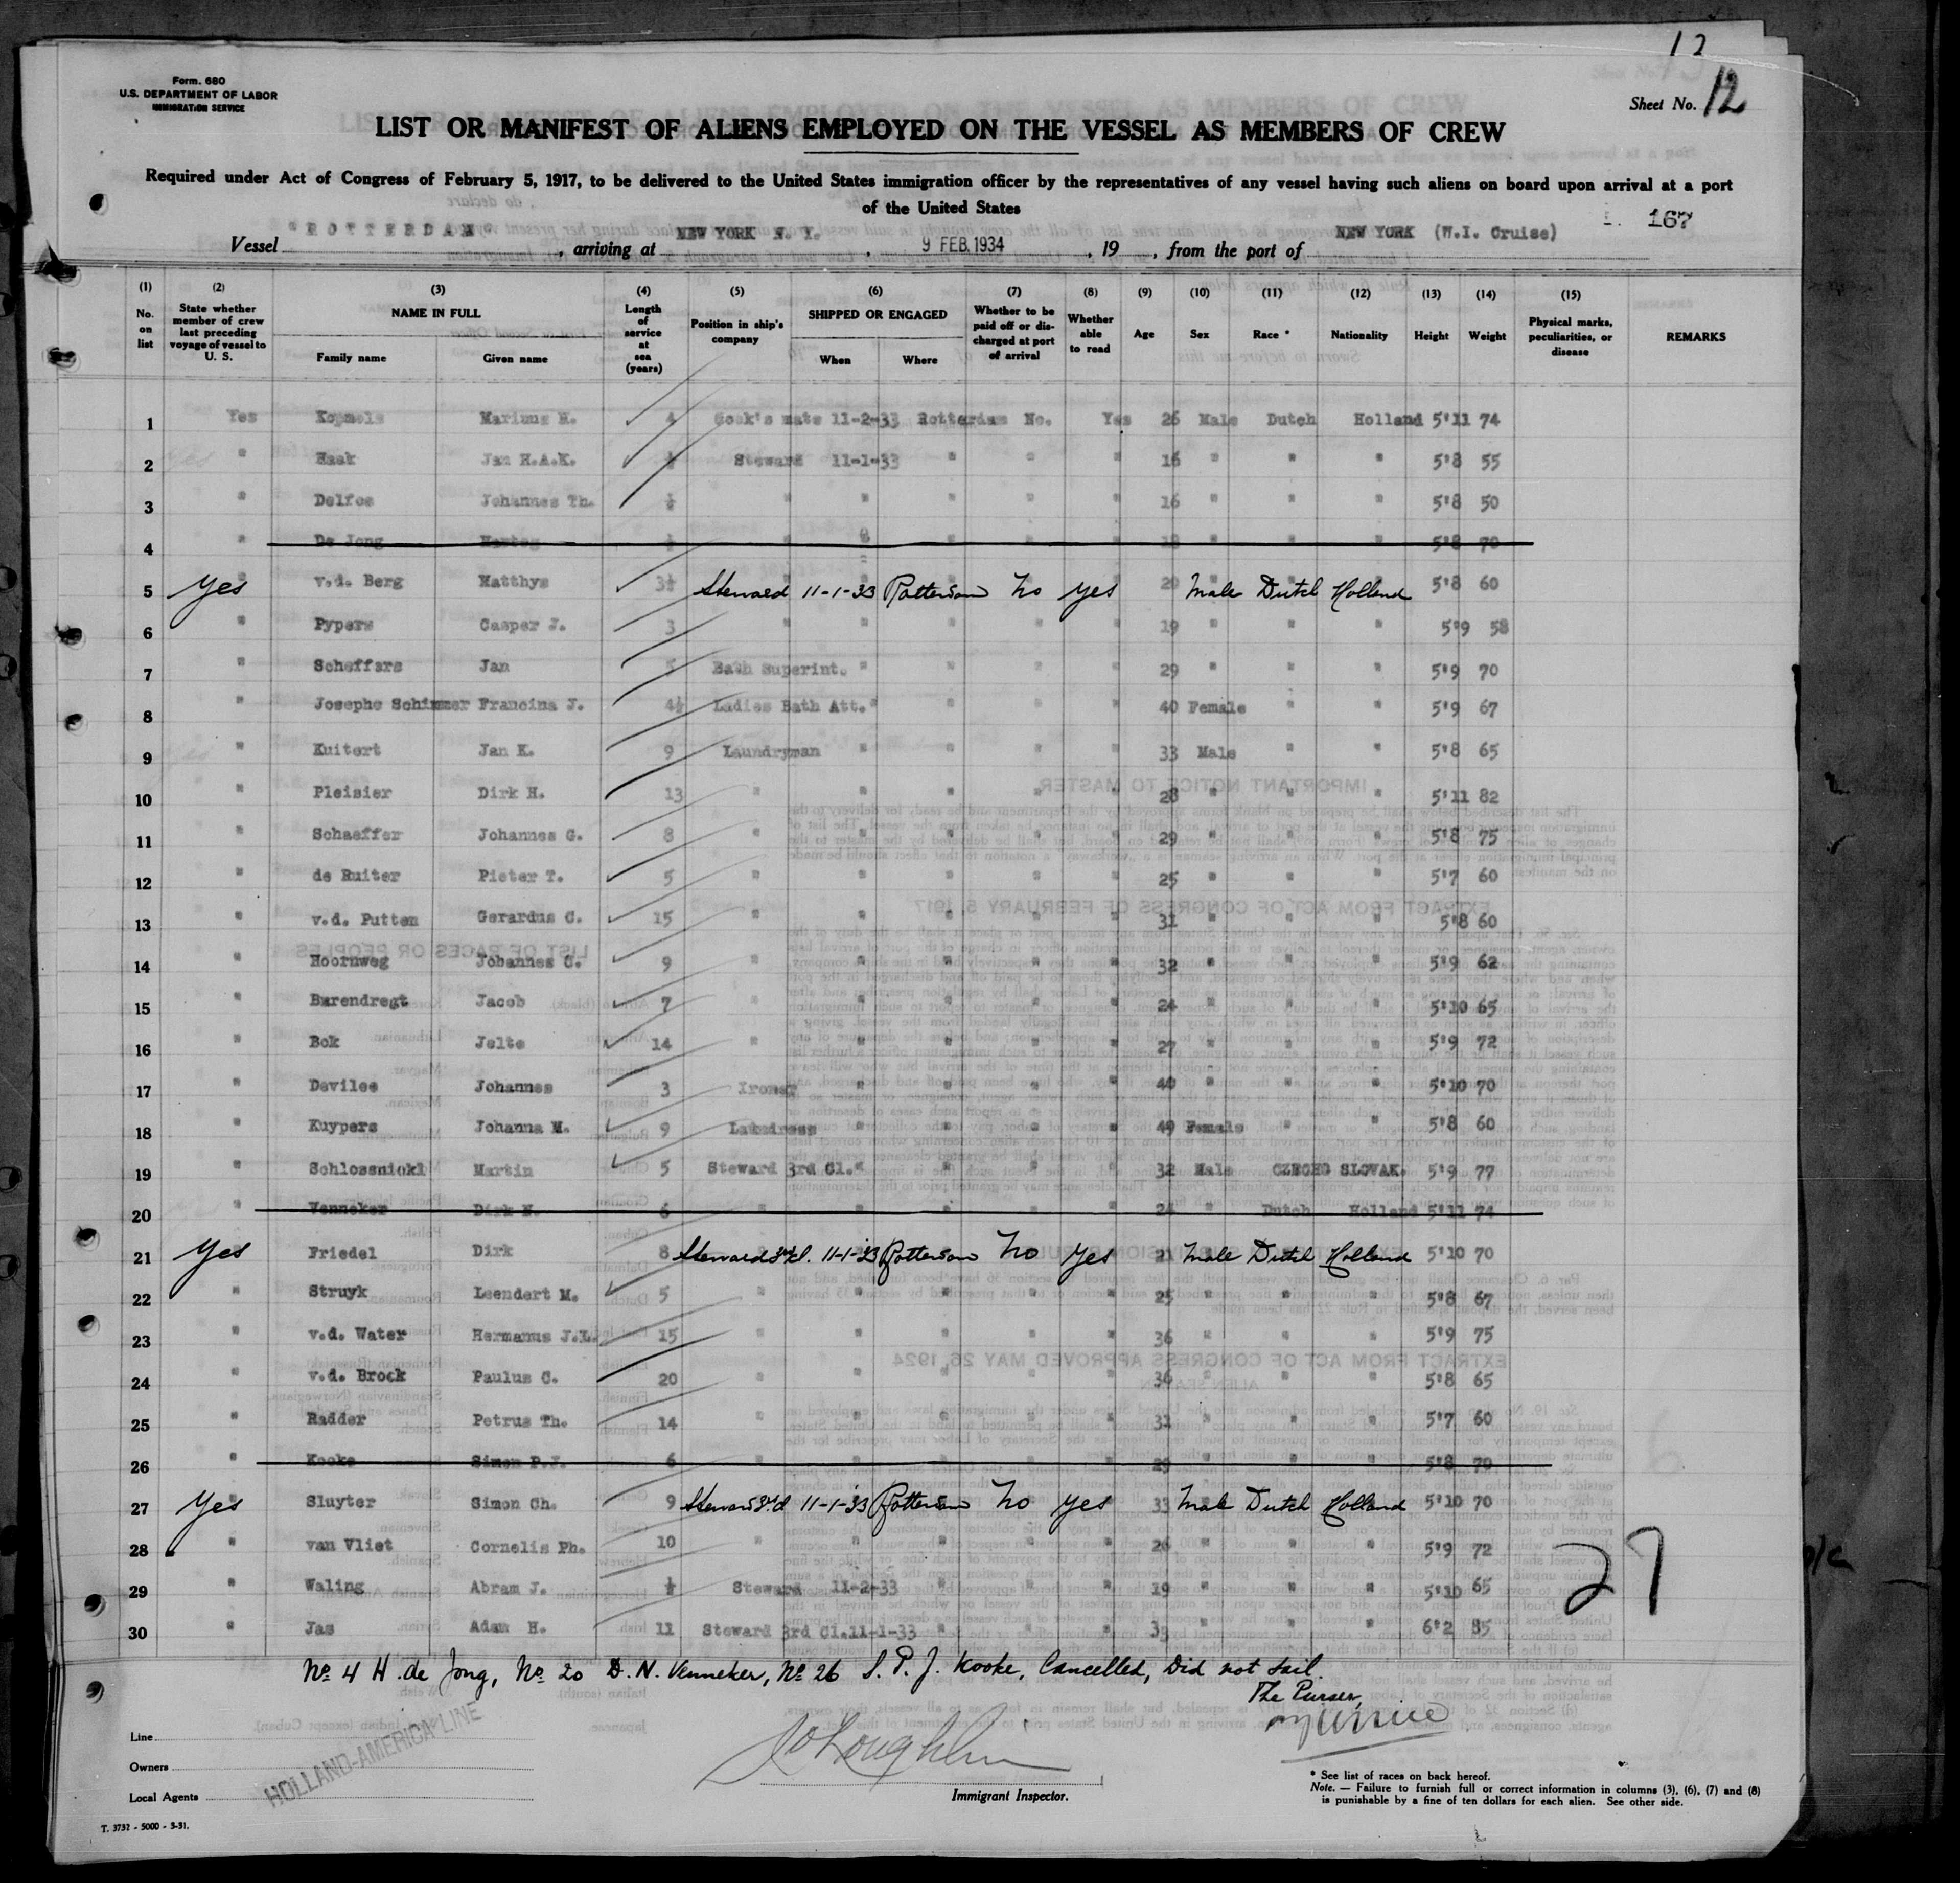 12
Form. 680
U.S. DEPARTMENT OF LABOR
IMMIGRATION SERVICE
Sheet No. 12
LIST OR MANIFEST OF ALIENS EMPLOYED ON THE VESSEL AS MEMBERS OF CREW
Required under Act of Congress of February 5, 1917, to be delivered to the United States immigration officer by the representatives of any vessel having such aliens on board upon arrival at a port
of the United States
167
Vessel "ROTTERDAM", arriving at NEW YORK N. Y., 9 FEB. 1934, 19 , from the port of NEW YORK (W.I. Cruise)
(1) (2) (3) (4) (5) (6) (7) (8) (9) (10) (11) (12) (13) (14) (15)
No. on list State whether member of crew last preceding voyage of vessel to U. S. NAME IN FULL Family name Given name Length of service at sea (years) Position in ship's company SHIPPED OR ENGAGED When Where Whether to be paid off or discharged at port of arrival Whether able to read Age Sex Race * Nationality Height Weight Physical marks, peculiarities, or disease REMARKS
1 Yes Kopmels Marinus H. 4 Cook's mate 11-2-33 Rotterdam No. Yes 26 Male Dutch Holland 5'11 74
2 " Haak Jan H.A.K. ½ Steward 11-1-33 " " " 16 " " " 5'8 55
3 " Delfos Johannes Th. ½ " " " " " 16 " " " 5'8 50
4 " De Jong Hartog ½ " " " " 18 " " " 5'8 70
5 Yes v.d. Berg Matthys 3½ Steward 11-1-33 Rotterdam No Yes 20 Male Dutch Holland 5'8 60
6 " Pypers Casper J. 3 " " " " " 19 " " " 5'9 58
7 " Scheffers Jan 5 Bath Superint. " " " " 29 " " " 5'9 70
8 " Josephe Schimmer Francina J. 4½ Ladies Bath Att. " " " " 40 Female " " 5'9 67
9 " Kuitert Jan K. 9 Laundryman " " " " 33 Male " " 5'8 65
10 " Pleisier Dirk H. 13 " " " " " 28 " " " 5'11 82
11 " Schaeffer Johannes G. 8 " " " " " 29 " " " 5'8 75
12 " de Ruiter Pieter T. 5 " " " " " 25 " " " 5'7 60
13 " v.d. Putten Gerardus C. 15 " " " " " 31 " " " 5'8 60
14 " Hoornweg Johannes C. 9 " " " " " 32 " " " 5'9 62
15 " Barendregt Jacob 7 " " " " " 24 " " " 5'10 65
16 " Bok Jelte 14 " " " " " 27 " " " 5'9 72
17 " Devilee Johannes 3 Ironer " " " " 40 " " " 5'10 70
18 " Kuypers Johanna M. 9 Laundress " " " " 49 Female " " 5'8 60
19 " Schlossnickl Martin 5 Steward 3rd Cl. " " " " 32 Male CZECHO SLOVAK. 5'9 77
20 " Venneker Dirk N. 6 " " " " " 24 " Dutch Holland 5'11 74
21 Yes Friedel Dirk 8 Steward 3rd cl. 11-1-33 Rotterdam No Yes 21 Male Dutch Holland 5'10 70
22 " Struyk Leendert M. 5 " " " " " 25 " " " 5'8 67
23 " v.d. Water Hermanus J.L. 15 " " " " " 36 " " " 5'9 75
24 " v.d. Brock Paulus C. 20 " " " " " 36 " " " 5'8 65
25 " Radder Petrus Th. 14 " " " " " 31 " " " 5'7 60
26 " Kooke Simon P.J. 6 " " " " " 29 " " " 5'8 70
27 Yes Sluyter Simon Ch. 9 Steward 3rd cl 11-1-33 Rotterdam No Yes 33 Male Dutch Holland 5'10 70
28 " van Vliet Cornelis Ph. 10 " " " " " 26 " " " 5'9 72
29 " Waling Abram J. ½ Steward 11-2-33 " " " 19 " " " 5'10 65
30 " Jas Adam H. 11 Steward 3rd Cl. 11-1-33 " " " 35 " " " 6'2 85
27
No 4 H. de Jong, No 20 D. N. Venneker, No 26 S. P. J. Kooke, Cancelled, Did not sail.
The Purser,
Line
Owners
Local Agents
HOLLAND-AMERICA LINE
Immigrant Inspector.
* See list of races on back hereof.
Note. — Failure to furnish full or correct information in columns (3), (6), (7) and (8)
is punishable by a fine of ten dollars for each alien. See other side.
T. 3732 - 5000 - 3-31.